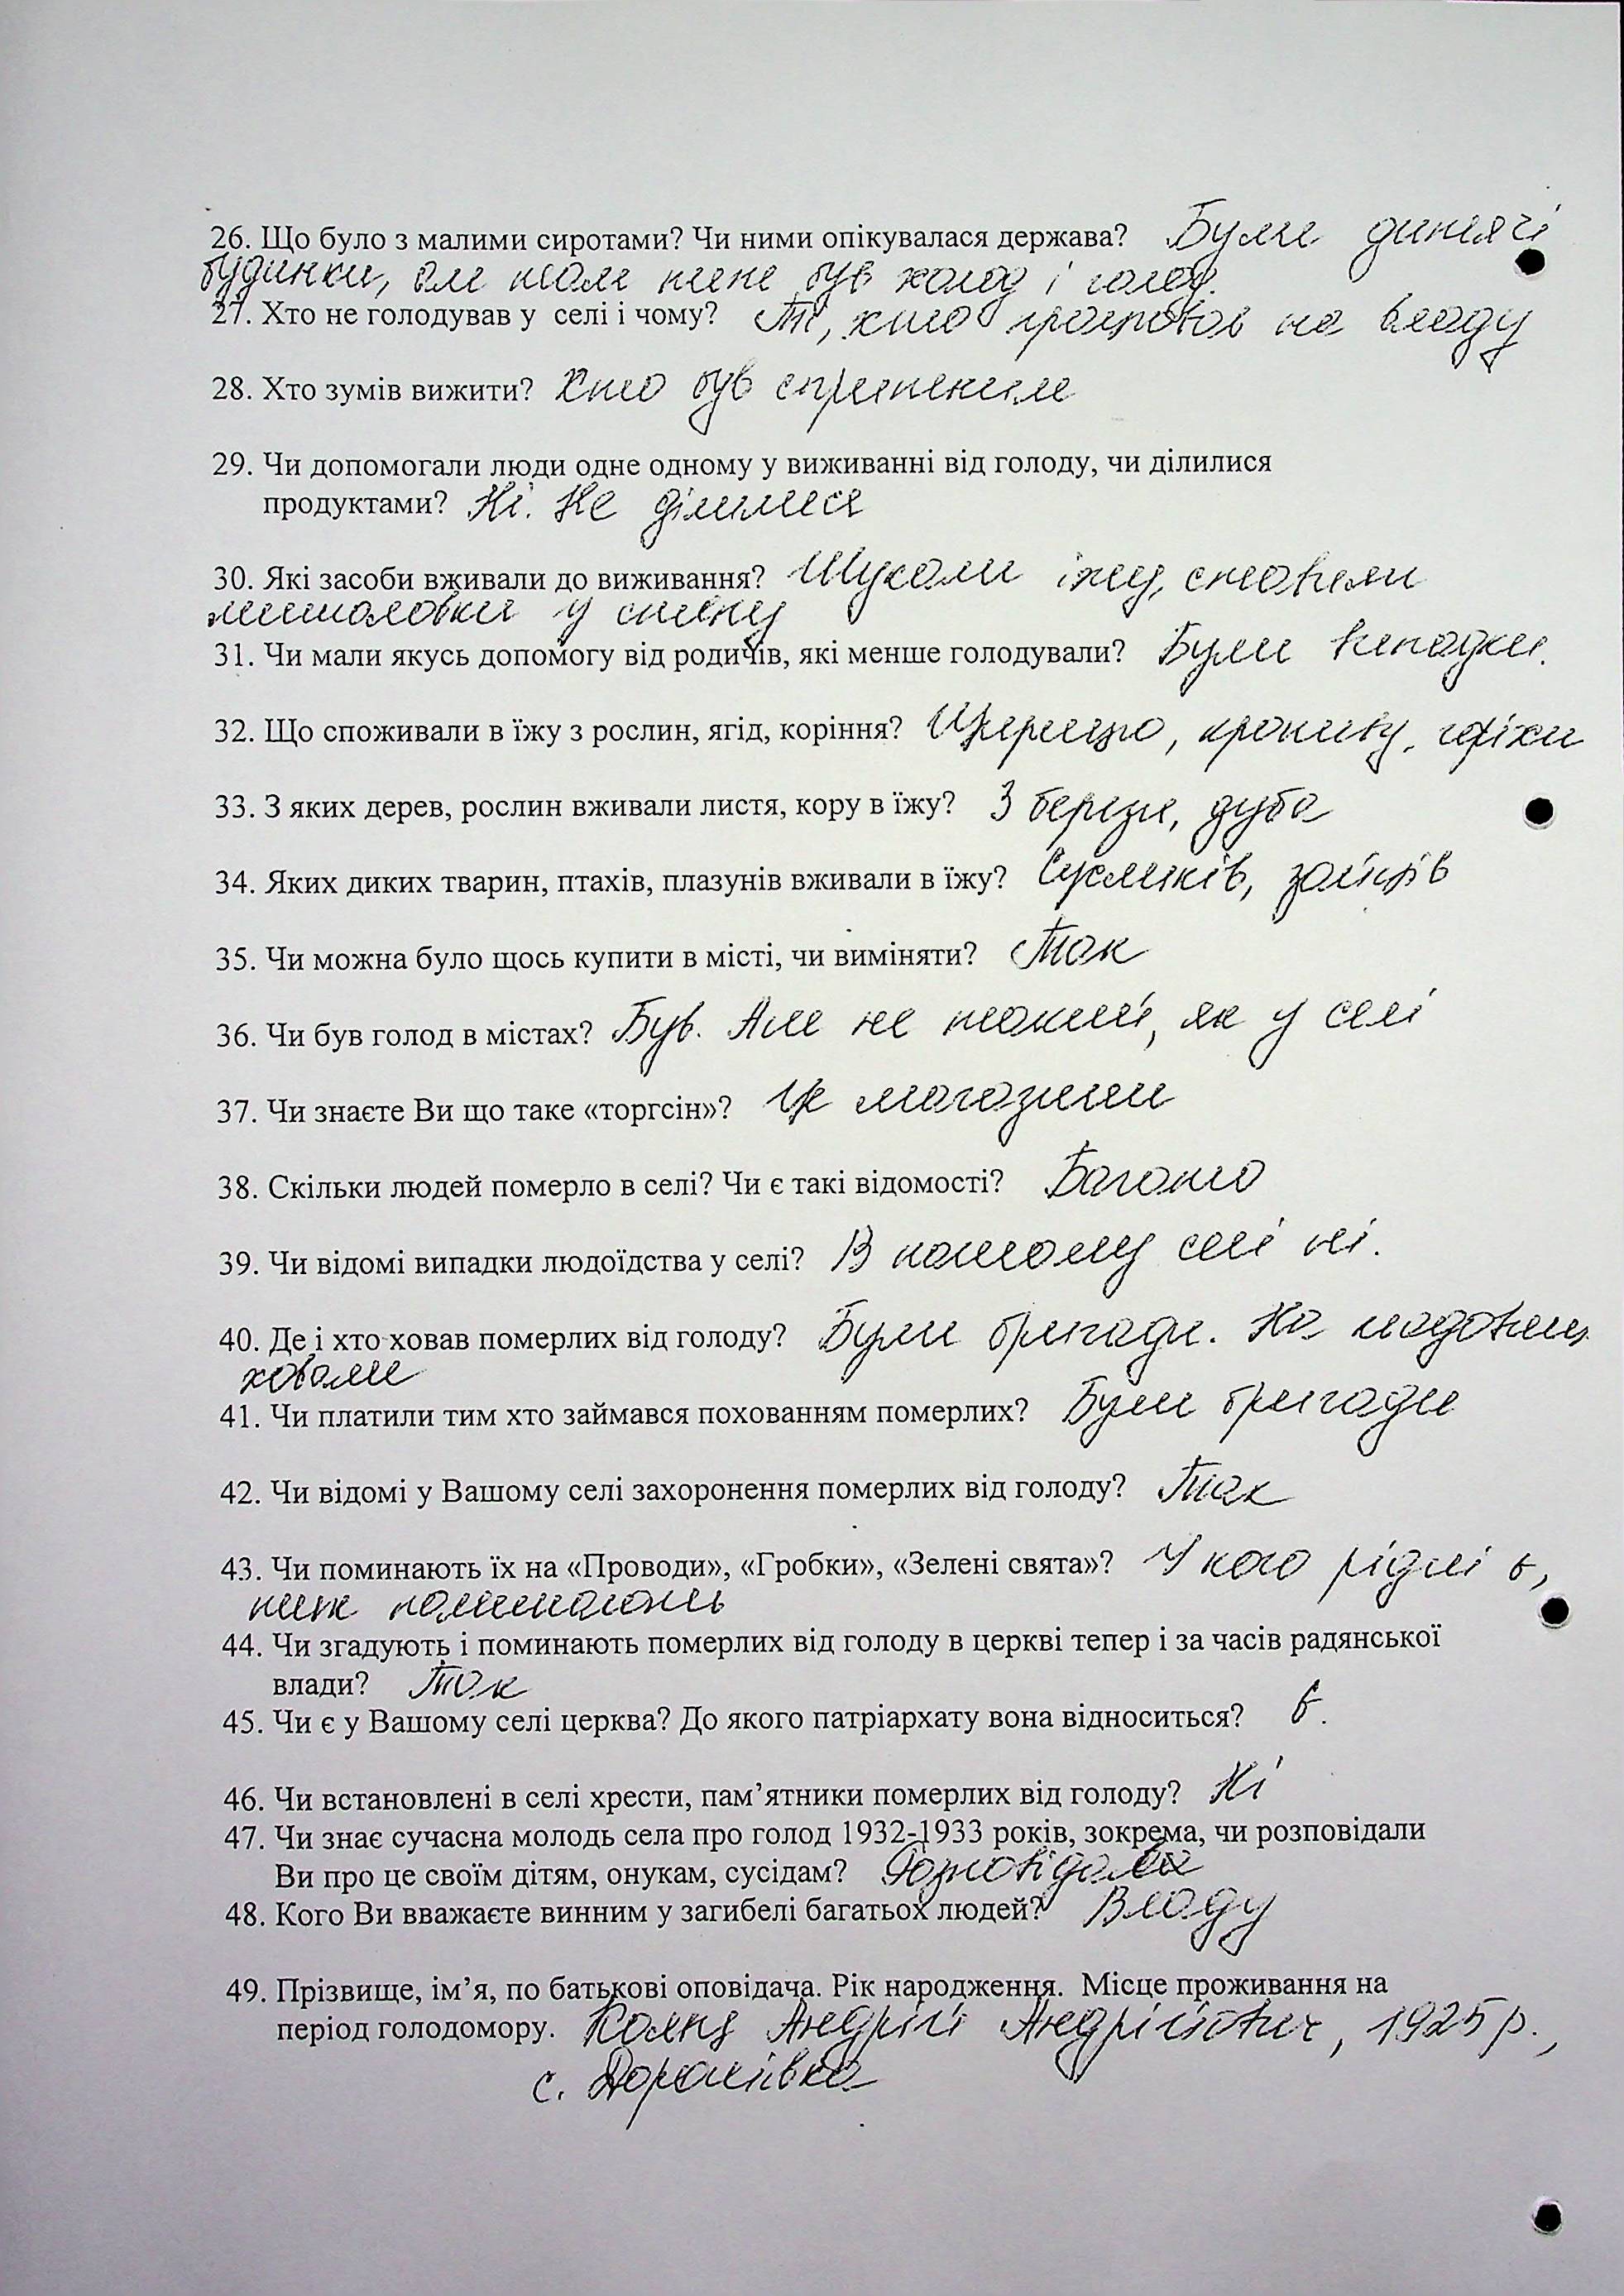 26. Що було з малими сиротами? Чи ними опікувалася держава? Були дитячі
будинки, але там теж був холод і голод.
27. Хто не голодував у селі і чому? Ті, хто працював на владу
28. Хто зумів вижити? Хто був спритним
29. Чи допомогали люди одне одному у виживанні від голоду, чи ділилися
продуктами? Ні. Не ділилися
30. Які засоби вживали до виживання? Шукали їжу, ставили
мишоловки у степу
31. Чи мали якусь допомогу від родичів, які менше голодували? Були випадки.
32. Що споживали в їжу з рослин, ягід, коріння? кропиву, горіхи
33. З яких дерев, рослин вживали листя, кору в їжу? З берези, дуба
34. Яких диких тварин, птахів, плазунів вживали в їжу? Сусликів, зайців
35. Чи можна було щось купити в місті, чи виміняти? Так
36. Чи був голод в містах? Був. Але не такий, як у селі
37. Чи знаєте Ви що таке «торгсін»? Це магазини
38. Скільки людей померло в селі? Чи є такі відомості? Багато
39. Чи відомі випадки людоїдства у селі? В нашому селі ні.
40. Де і хто ховав померлих від голоду? Були бригади. На кладовищі
ховали
41. Чи платили тим хто займався похованням померлих? Були бригади
42. Чи відомі у Вашому селі захоронення померлих від голоду? Так
43. Чи поминають їх на «Проводи», «Гробки», «Зелені свята»? У кого рідні є,
поминають
44. Чи згадують і поминають померлих від голоду в церкві тепер і за часів радянської
влади? Так
45. Чи є у Вашому селі церква? До якого патріархату вона відноситься? Є.
46. Чи встановлені в селі хрести, пам’ятники померлих від голоду? Ні
47. Чи знає сучасна молодь села про голод 1932-1933 років, зокрема, чи розповідали
Ви про це своїм дітям, онукам, сусідам? Розповідали
48. Кого Ви вважаєте винним у загибелі багатьох людей? Владу
49. Прізвище, ім’я, по батькові оповідача. Рік народження. Місце проживання на
період голодомору. Андрій Андрійович, 1925 р.,
с.